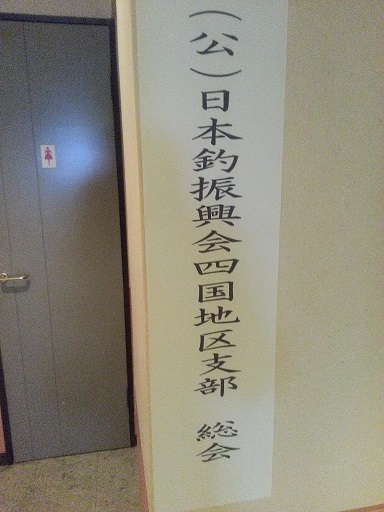 （公）日本釣振興会四国地区支部　総会